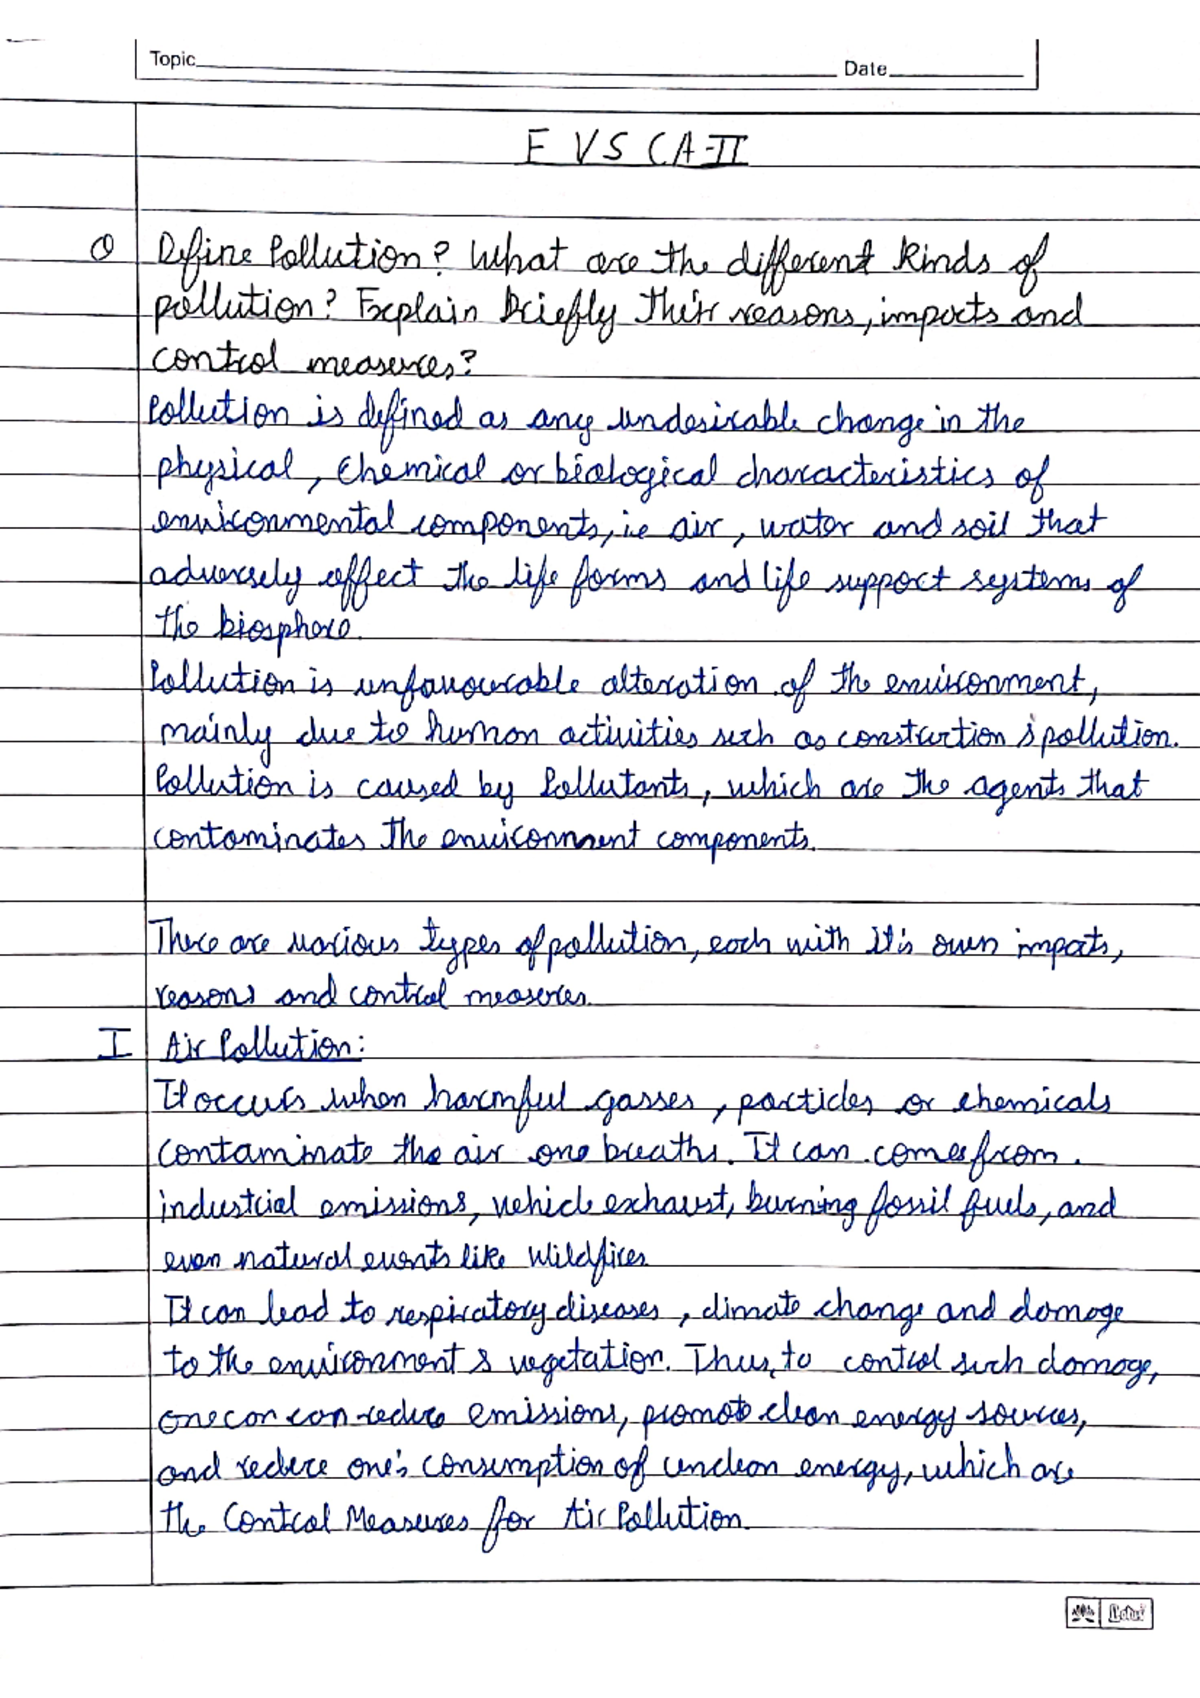 Topic Date
E V S CA-II
Q Define Pollution? What are the different kinds of
pollution? Explain Briefly their reasons, impacts and
control measures?
Pollution is defined as any undesirable change in the
physical, chemical or biological characteristics of
environmental components, i.e air, water and soil that
adversely affect the life forms and life support systems of
the biosphere.
Pollution is unfavourable alteration of the environment,
mainly due to human activities such as constartion & pollution.
Pollution is caused by Pollutants, which are the agents that
contaminates the environment components.
There are various types of pollution, each with it's own impacts,
reasons and control measures.
I Air Pollution:
It occurs when harmful gasses, particles or chemicals
contaminate the air one breaths. It can come from
industrial emissions, vehicle exhaust, burning fossil fuels, and
even natural events like wildfires.
It can lead to respiratory diseases, climate change and damage
to the environment & vegetation. Thus, to control such damage,
one can can reduce emissions, promote clean energy sources,
and reduce one's consumption of unclean energy, which are
the Control Measures for Air Pollution.
Lotus